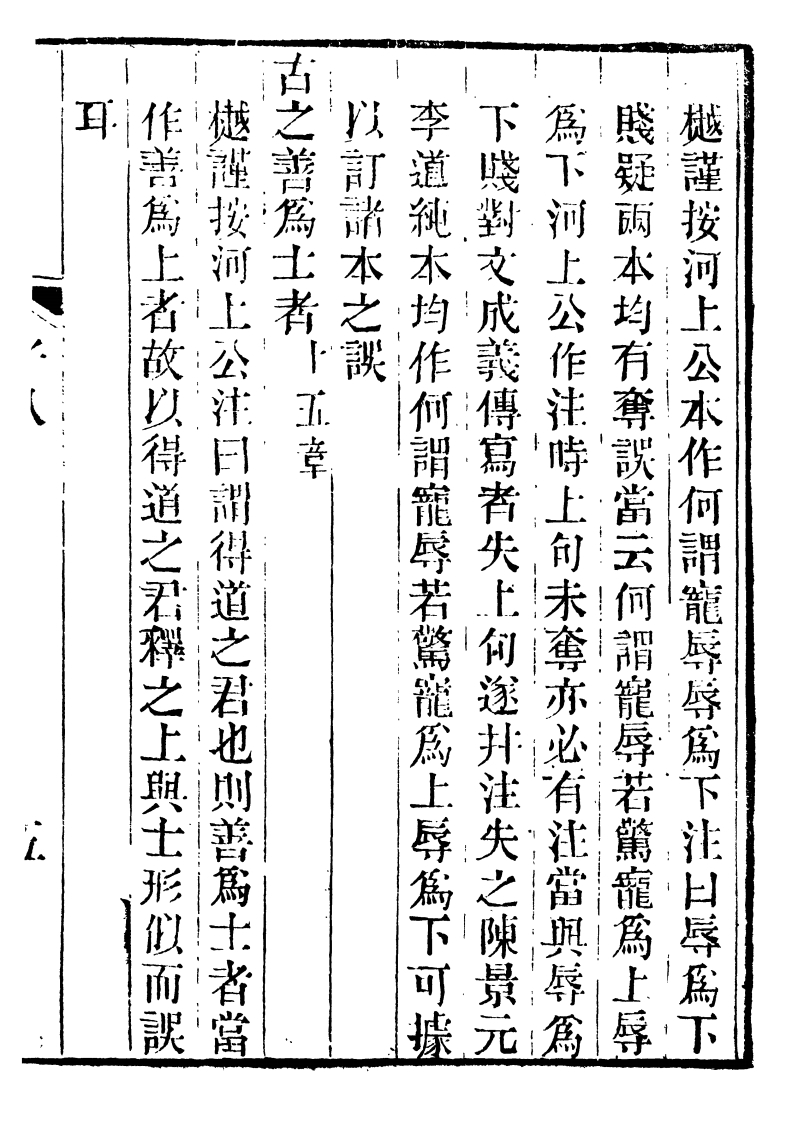 樾謹按河上公本作何謂寵辱辱爲下注曰辱爲下
賤疑兩本均有奪誤當云何謂寵辱若驚寵爲上辱
爲下河上公作注時上句未奪亦必有注當與辱爲
下賤對文成義傳寫者失上句遂幷注失之陳景元
李道純本均作何謂寵辱若驚寵爲上辱爲下可據
以訂諸本之誤
古之善爲士者十五章
樾謹按河上公注曰謂得道之君也則善爲士者當
作善爲上者故以得道之君釋之上與士形似而誤
耳
五